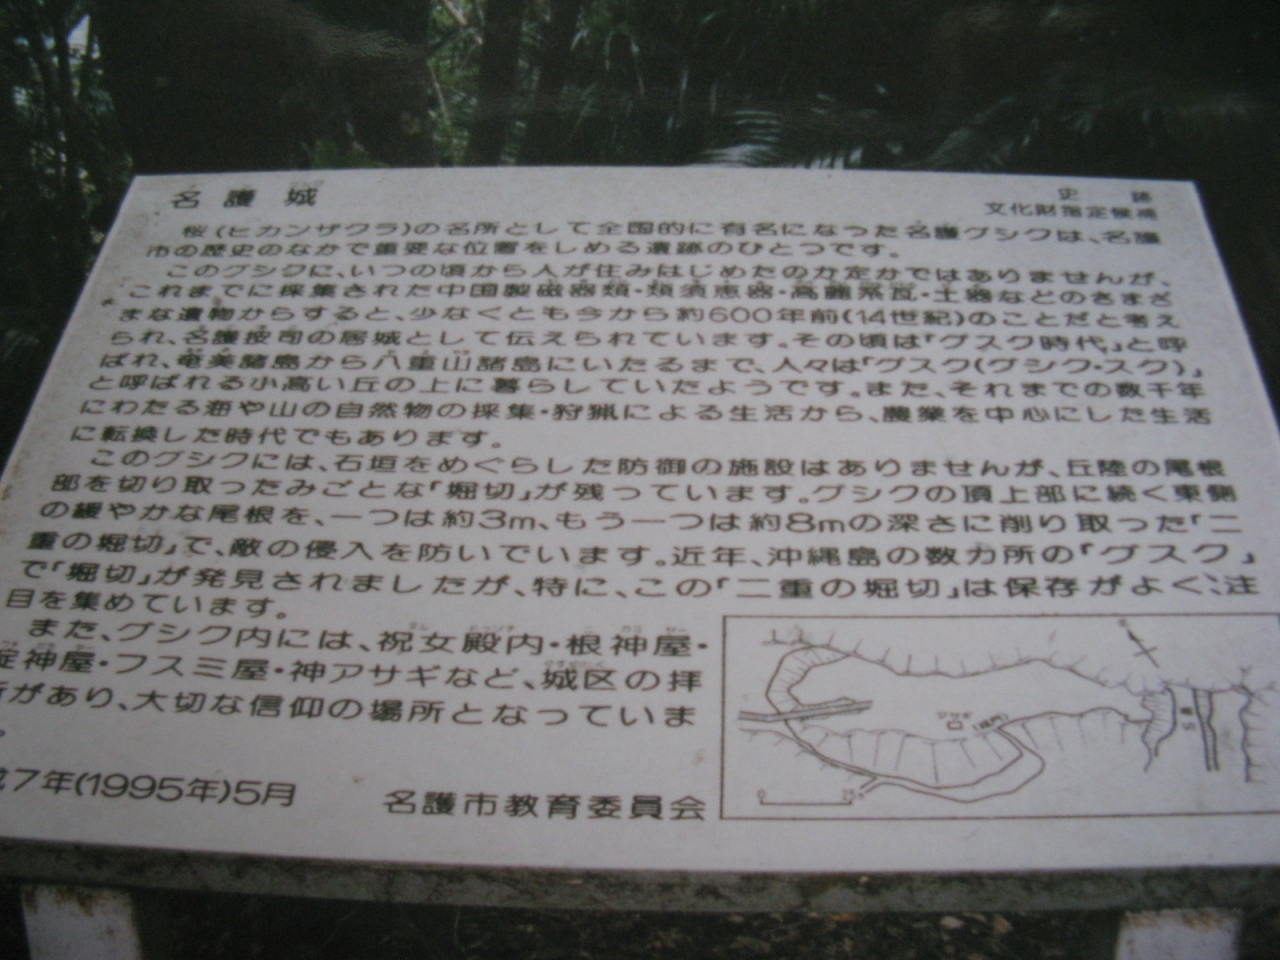 名護城
史跡
文化財指定候補
桜(ヒカンザクラ)の名所として全国的に有名になった名護グシクは、名護
市の歴史のなかで重要な位置をしめる遺跡のひとつです。
このグシクに、いつの頃から人が住みはじめたのか定かではありませんが、
これまでに採集された中国製磁器類・類須恵器・高麗系瓦・土器などのさまざ
まな遺物からすると、少なくとも今から約600年前(14世紀)のことだと考え
られ、名護按司の居城として伝えられています。その頃は「グスク時代」と呼
ばれ、奄美諸島から八重山諸島にいたるまで、人々は「グスク(グシク・スク)」
と呼ばれる小高い丘の上に暮らしていたようです。また、それまでの数千年
にわたる海や山の自然物の採集・狩猟による生活から、農業を中心にした生活
に転換した時代でもあります。
このグシクには、石垣をめぐらした防御の施設はありませんが、丘陵の尾根
部を切り取ったみごとな「堀切」が残っています。グシクの頂上部に続く東側
の緩やかな尾根を、一つは約3m、もう一つは約8mの深さに削り取った「二
重の堀切」で、敵の侵入を防いでいます。近年、沖縄島の数カ所の「グスク」
で「堀切」が発見されましたが、特に、この「二重の堀切」は保存がよく、注
目を集めています。
また、グシク内には、祝女殿内・根神屋・
掟神屋・フスミ屋・神アサギなど、城区の拝
所があり、大切な信仰の場所となっていま
。
成7年(1995年)5月
名護市教育委員会
アサギ
0
25m